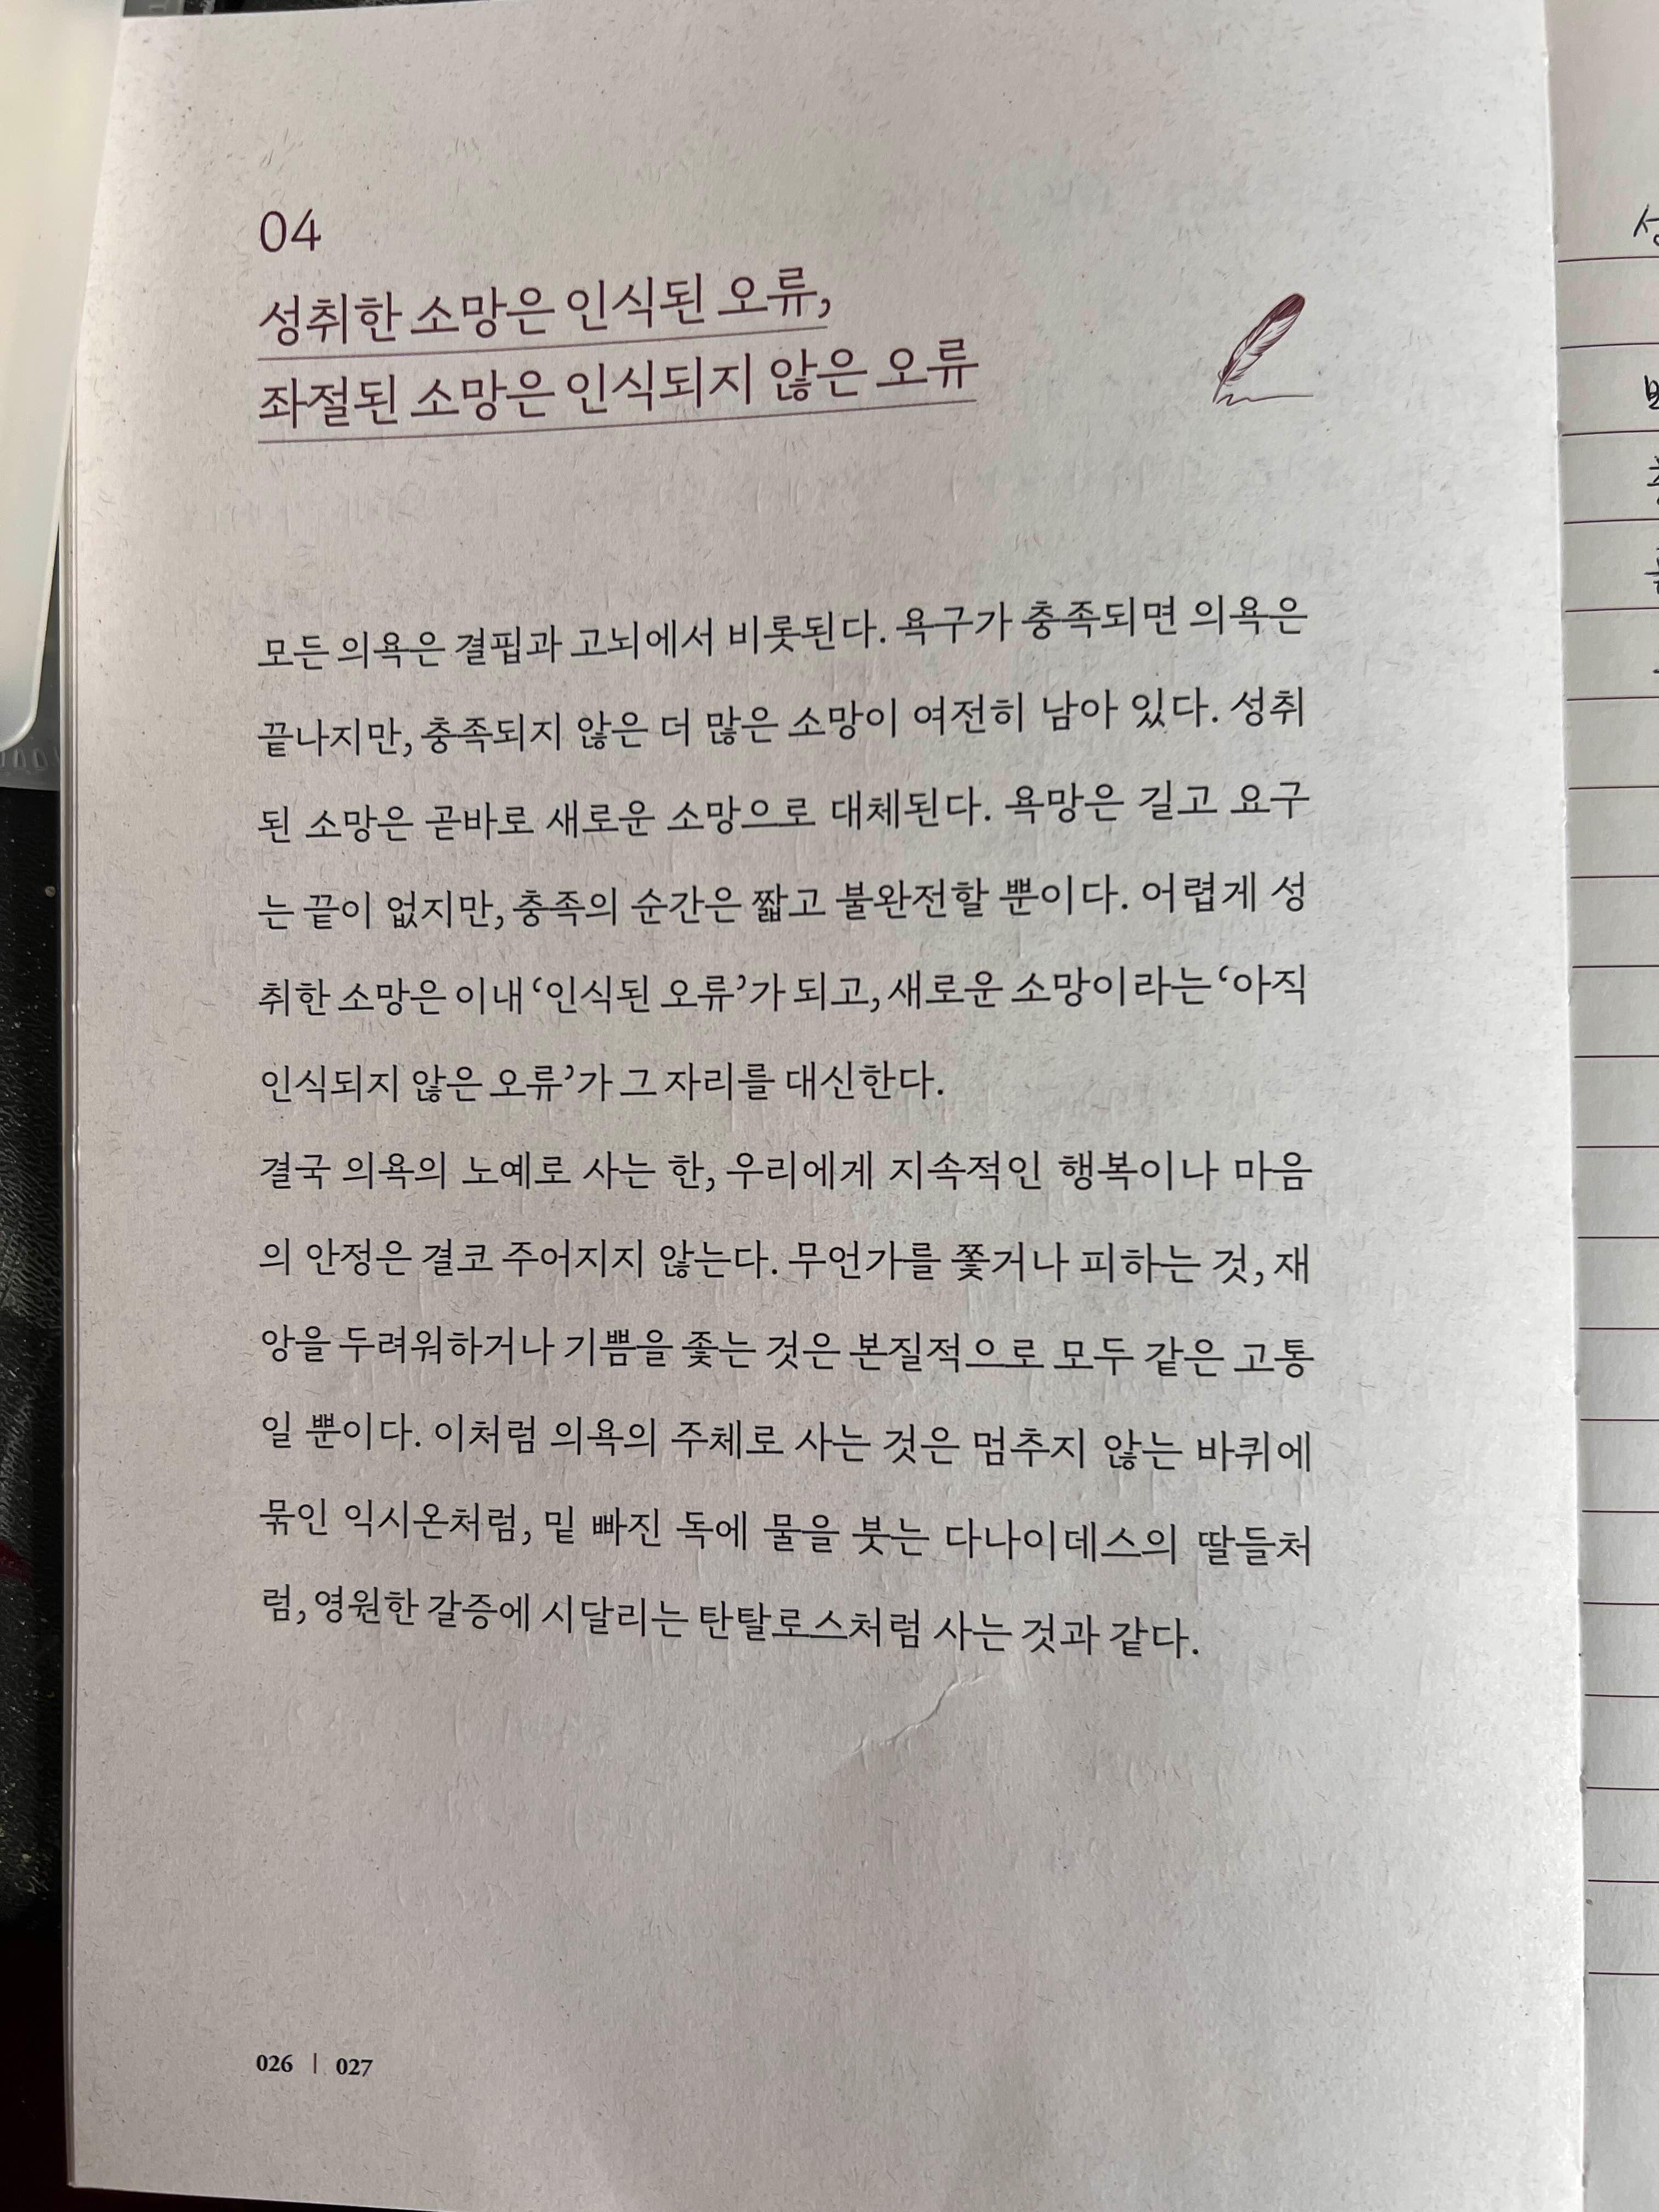 04
성취한 소망은 인식된 오류,
좌절된 소망은 인식되지 않은 오류
모든 의욕은 결핍과 고뇌에서 비롯된다. 욕구가 충족되면 의욕은
끝나지만, 충족되지 않은 더 많은 소망이 여전히 남아 있다. 성취
된 소망은 곧바로 새로운 소망으로 대체된다. 욕망은 길고 요구
는 끝이 없지만, 충족의 순간은 짧고 불완전할 뿐이다. 어렵게 성
취한 소망은 이내 ‘인식된 오류’가 되고, 새로운 소망이라는 ‘아직
인식되지 않은 오류’가 그 자리를 대신한다.
결국 의욕의 노예로 사는 한, 우리에게 지속적인 행복이나 마음
의 안정은 결코 주어지지 않는다. 무언가를 쫓거나 피하는 것, 재
앙을 두려워하거나 기쁨을 좇는 것은 본질적으로 모두 같은 고통
일 뿐이다. 이처럼 의욕의 주체로 사는 것은 멈추지 않는 바퀴에
묶인 익시온처럼, 밑 빠진 독에 물을 붓는 다나이데스의 딸들처
럼, 영원한 갈증에 시달리는 탄탈로스처럼 사는 것과 같다.
026 | 027